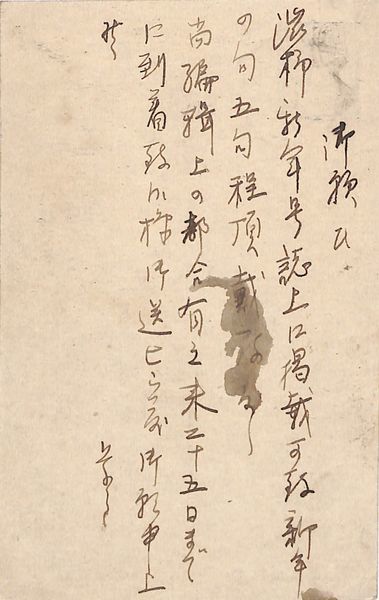 御願ひ
渋柿新年号誌上に掲載可致新年
の句五句程頂戴
尚編輯上の都合有之来二十五日まで
に到着致候様御送り被下度御願申上
候